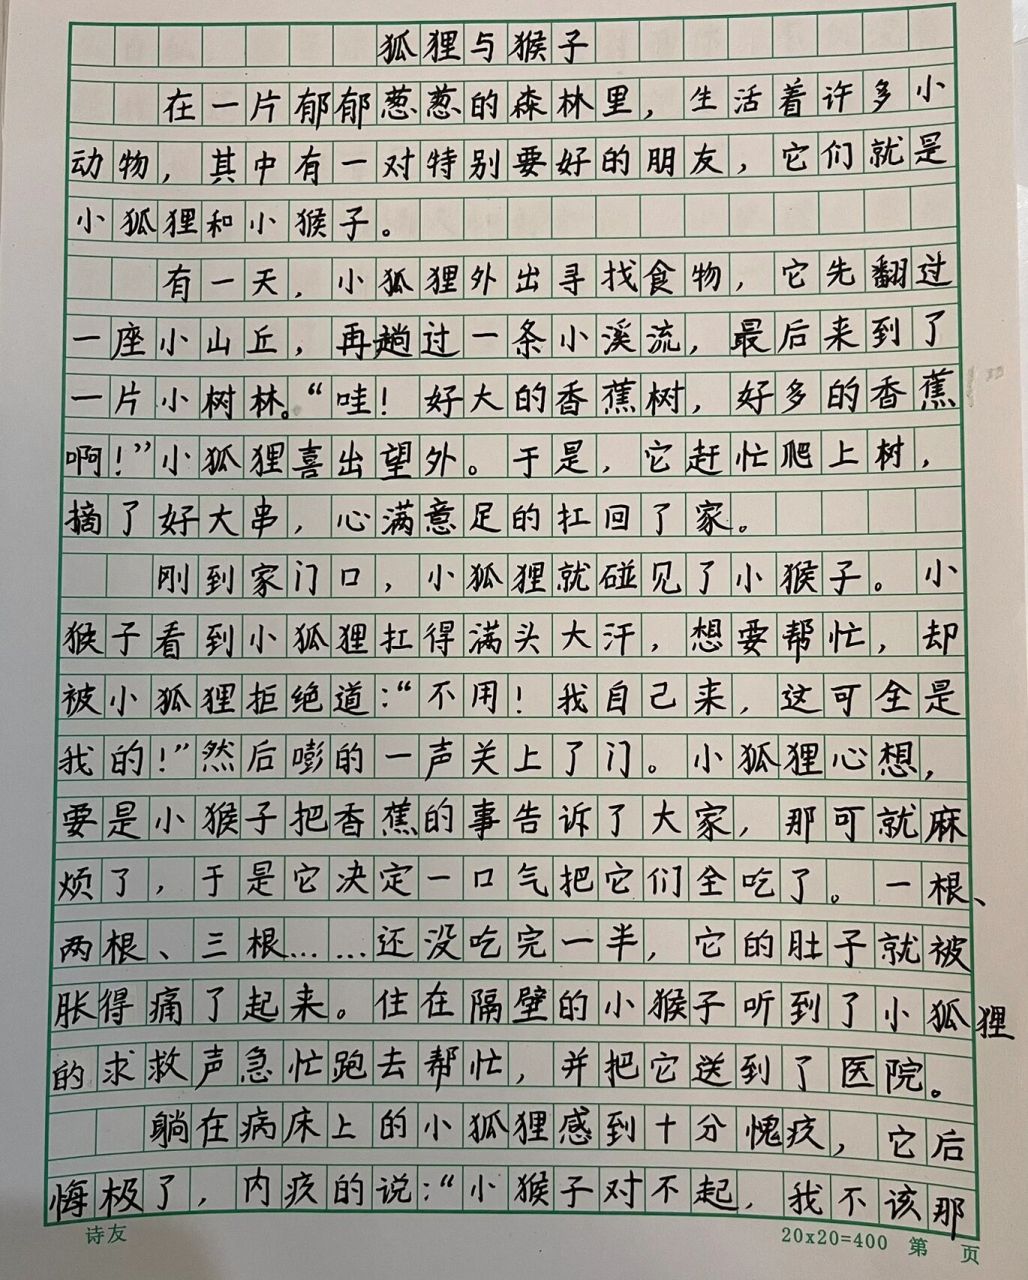 狐狸与猴子
在一片郁郁葱葱的森林里，生活着许多小
动物，其中有一对特别要好的朋友，它们就是
小狐狸和小猴子。
有一天，小狐狸外出寻找食物，它先翻过
一座小山丘，再趟过一条小溪流，最后来到了
一片小树林。“哇！好大的香蕉树，好多的香蕉
啊！”小狐狸喜出望外。于是，它赶忙爬上树，
摘了好大串，心满意足的扛回了家。
刚到家门口，小狐狸就碰见了小猴子。小
猴子看到小狐狸扛得满头大汗，想要帮忙，却
被小狐狸拒绝道：“不用！我自己来，这可全是
我的！”然后嘭的一声关上了门。小狐狸心想，
要是小猴子把香蕉的事告诉了大家，那可就麻
烦了，于是它决定一口气把它们全吃了。一根、
两根、三根……还没吃完一半，它的肚子就被
胀得痛了起来。住在隔壁的小猴子听到了小狐狸
的求救声急忙跑去帮忙，并把它送到了医院。
躺在病床上的小狐狸感到十分愧疚，它后
悔极了，内疚的说：“小猴子对不起，我不该那
诗友
20x20=400 第 页